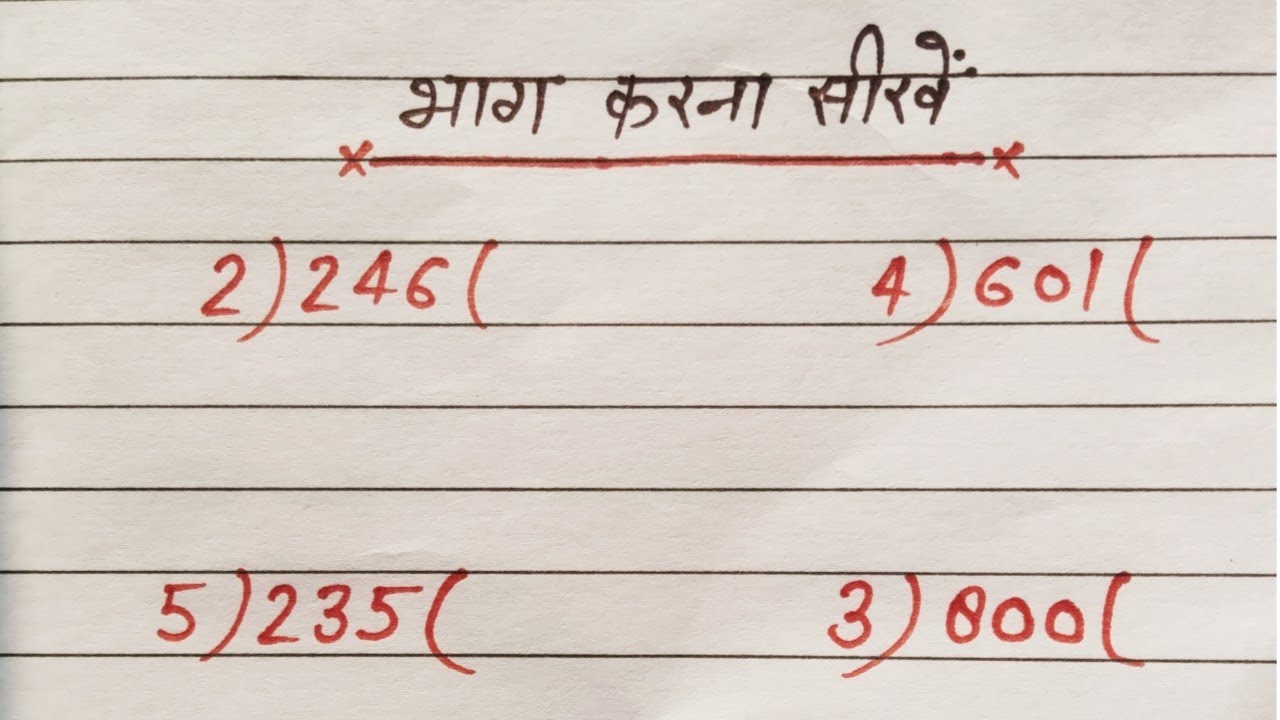 भाग करना सीखें
2)246(
4)601(
5)235(
3)800(